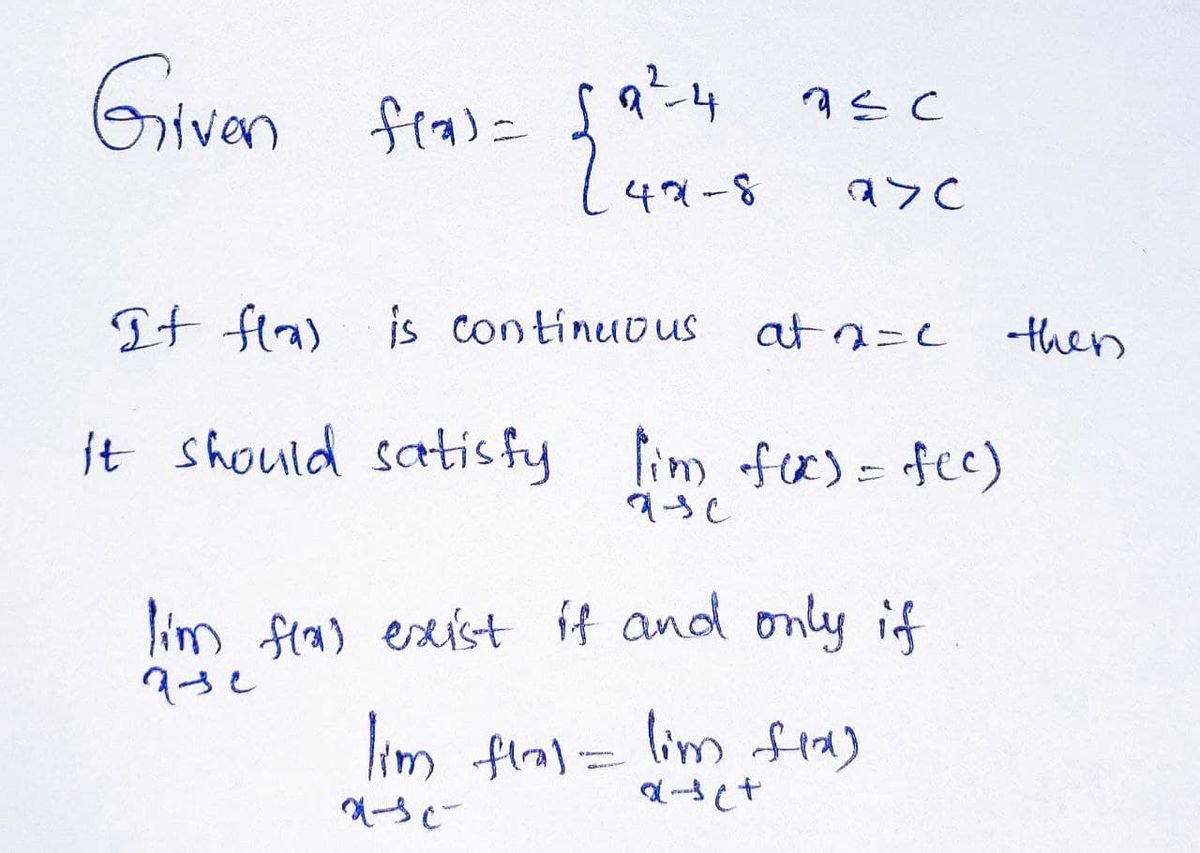 Given f(x) = { x²-4 x ≤ c
4x-8 x>c
If f(x) is continuous at x=c then
it should satisfy lim f(x) = f(c)
x→c
lim f(x) exist if and only if
x→c
lim f(x) = lim f(x)
x→c- x→c+